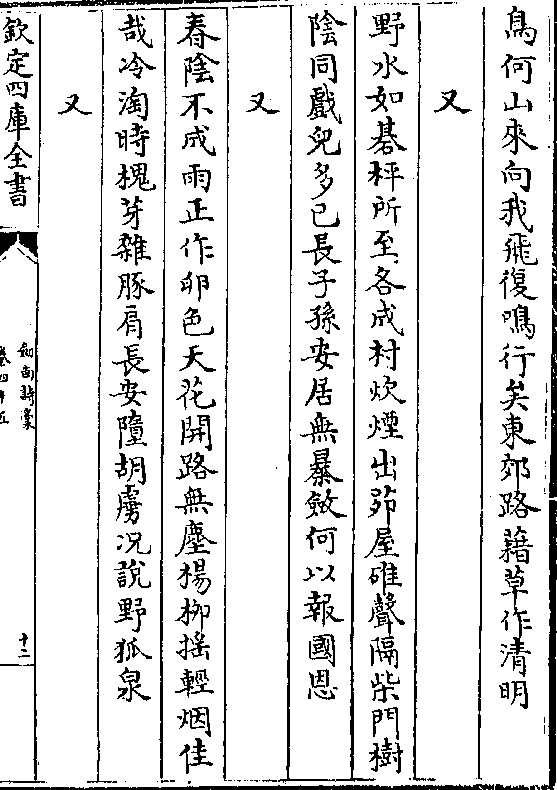 鳥何山來向我飛復鳴行矣東郊路藉草作清明
又
野水如碁枰所至各成村炊煙出茆屋碓聲隔柴門樹
陰同戲兒多已長子孫安居無暴斂何以報國恩
又
春陰不成雨正作卵色天花開路無塵楊栁揺輕烟佳
哉冷淘時槐芽雜豚肩長安墮胡虜况說野狐泉
又
欽定四庫全書
劍南詩稾
卷四十五
十二